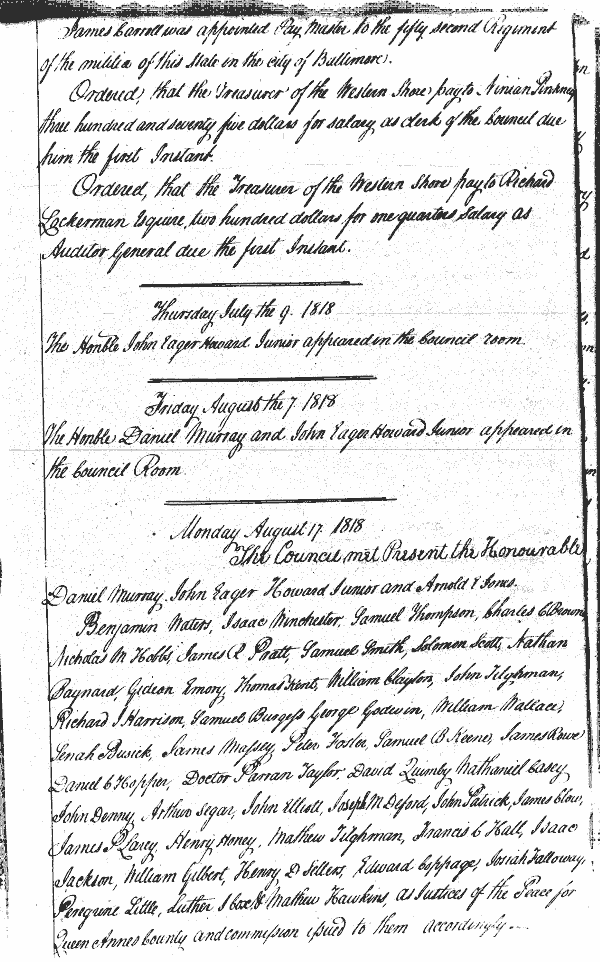 James Carroll was appointed Pay Master to the fifty second Regiment
of the militia of this State in the city of Baltimore.
Ordered, that the Treasurer of the Western Shore pay to Ninian Pinkney
three hundred and seventy five dollars for salary as clerk of the Council due
him the first Instant.
Ordered, that the Treasurer of the Western Shore pay to Richard
Lockerman Esquire, two hundred dollars for one quarters salary as
Auditor General due the first Instant.
Thursday July the 9. 1818
The Honble John Eager Howard Junior appeared in the Council room.
Friday August the 7. 1818
The Honble Daniel Murray and John Eager Howard Junior appeared in
the Council Room
Monday August 17. 1818
The Council met Present the Honourable
Daniel Murray, John Eager Howard Junior and Arnold E Jones.
Benjamin Waters, Isaac Winchester, Samuel Thompson, Charles C Browne
Nicholas M Hobbs, James R Pratt, Samuel Smith, Solomon Scott, Nathan
Baynard, Gideon Emory, Thomas Kent, William Clayton, John Tilghman,
Richard J Harrison, Samuel Burgess George Godwin, William Wallace,
Senah Busick, James Massey, Peter Foster, Samuel B Keene, James Rowe
Daniel C Hopper, Doctor Parran Taylor David Quimby Nathaniel Casey
John Denny, Arthur Segar, John Elliott, Joseph M Deford, John Patrick, James Clow,
James P Larey, Henry Honey, Mathew Tilghman, Francis C Hall, Isaac
Jackson, William Gilbert, Henry D Sellers, Edward Coppage, Josiah Falloway,
Peregrine Little, Luther J Cox & Mathew Hawkins, as Justices of the Peace for
Queen Annes County and commission issued to them accordingly